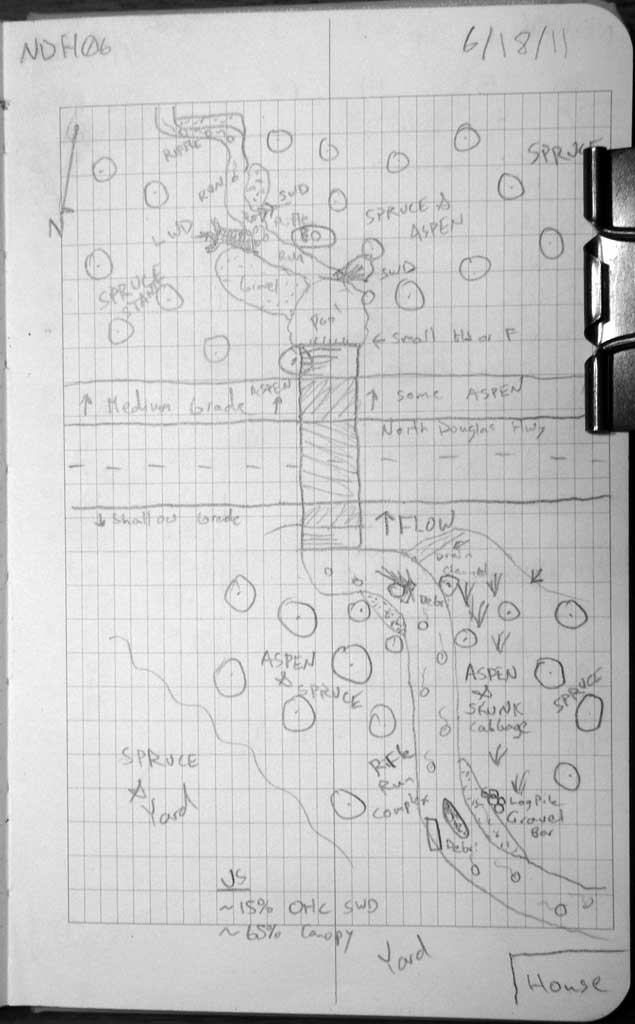 NDH06
6/18/11
RIFFLE
SPRUCE
RUN
SWD
SPRUCE &
ASPEN
RUN
SWD
SPRUCE
Gravel
Pool
← Small
ASPEN
↑ Medium Grade
↑
↑ Some ASPEN
North Douglas Hwy
↓ Shallow Grade
↑ FLOW
Drain
Channel
Debris
ASPEN
&
SPRUCE
ASPEN
&
SKUNK
Cabbage
SPRUCE
SPRUCE
&
Yard
Riffle
Run
Complex
Log Pile
Gravel
Bar
Debris
US
~15% SWD
~65% Canopy
Yard
House
N